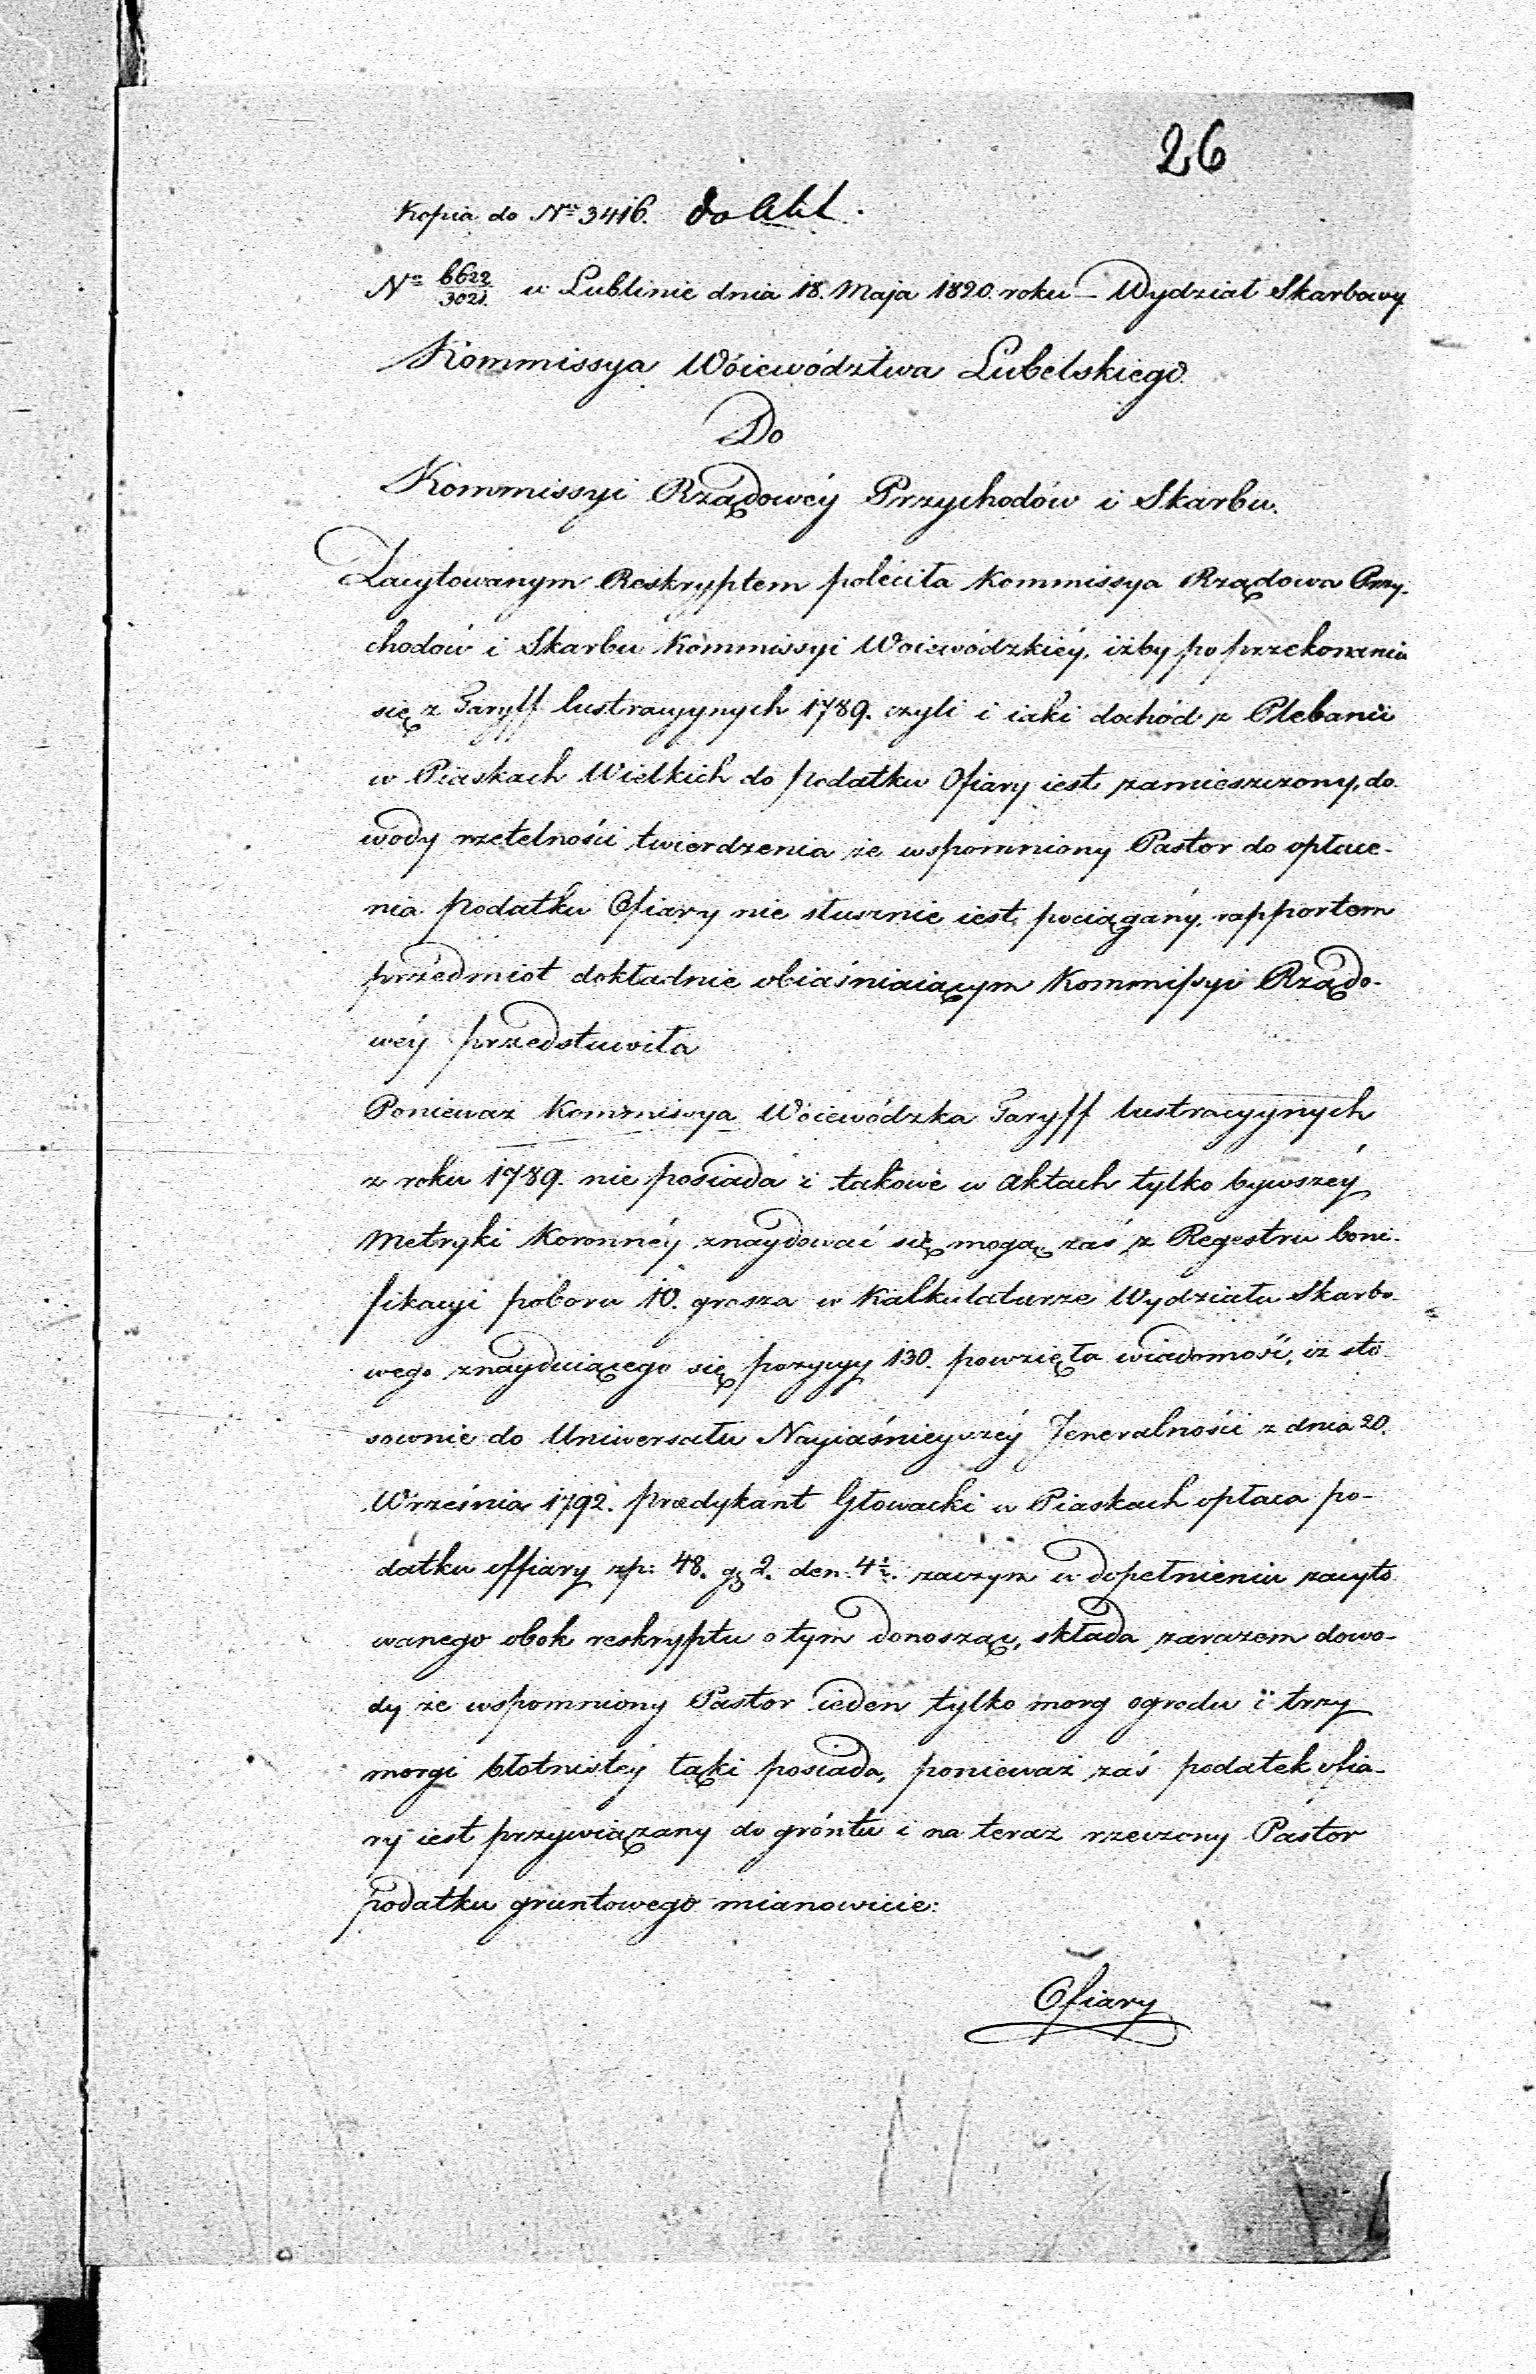 26
Kopia do Nro 3416. do Akt.
No 6622/3021 w Lublinie dnia 18. Maja 1820. roku – Wydział Skarbowy
Kommissya Wóiewództwa Lubelskiego.
Do
Kommissyi Rządowéy Przychodów i Skarbu.
Zacytowanym Reskryptem poleciła Kommissya Rządowa Przy-
chodów i Skarbu Kommissyi Woiewódzkiéy, iżby po przekonaniu
się z Taryff lustracyynych 1789. czyli i iaki dochód z Plebanii
w Piaskach Wielkich do podatku Ofiary iest zamieszczony, do-
wody rzetelności twierdzenia że wspomniony Pastor do opłace-
nia podatku Ofiary nie słusznie iest pociągány, rapportem
przedmiot dokładnie obiaśniaiącym Kommissyi Rządo-
wéy przedstawiła
Ponieważ Kommissya Wóiewódzka Taryff lustracyynych
z roku 1789. nie posiada i takowe w aktach tylko bywszéy
Metryki Koronnéy znaydować się mogą, zaś z Regestru boni-
fikacyi poboru 10. grosza w Kalkulaturze Wydziału Skarbo-
wego znayduiącego się pozycyy 130. powzięła wiadomość, iż sto-
sownie do Uniwersału Nayiaśnieyszéy Jeneralności z dnia 20.
Września 1792. prædykant Głowacki w Piaskach opłaca po-
datku offiary zp: 48. g. 2. den. 4½. zaczym w dopełnieniu zacyto-
wanego obok reskryptu o tym donosząc, składa zarazem dowo-
dy że wspomniony Pastor ieden tylko morg ogrodu i trzy
morgi błotnistéy łąki posiada, ponieważ zaś podatek ofia-
ry iest przywiązany do gróntu i na teraz rzeczony Pastor
podatku gruntowego mianowicie:
Ofiary